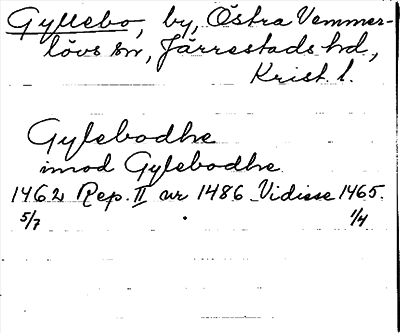 Gyllebo, by, Östra Vemmer-
lövs sn, Järrestads hd,
Krist. l.
Gylebodhe
imod Gylebodhe
1462 Rep. II nr 1486 Vidisse 1465.
5/7 1/4